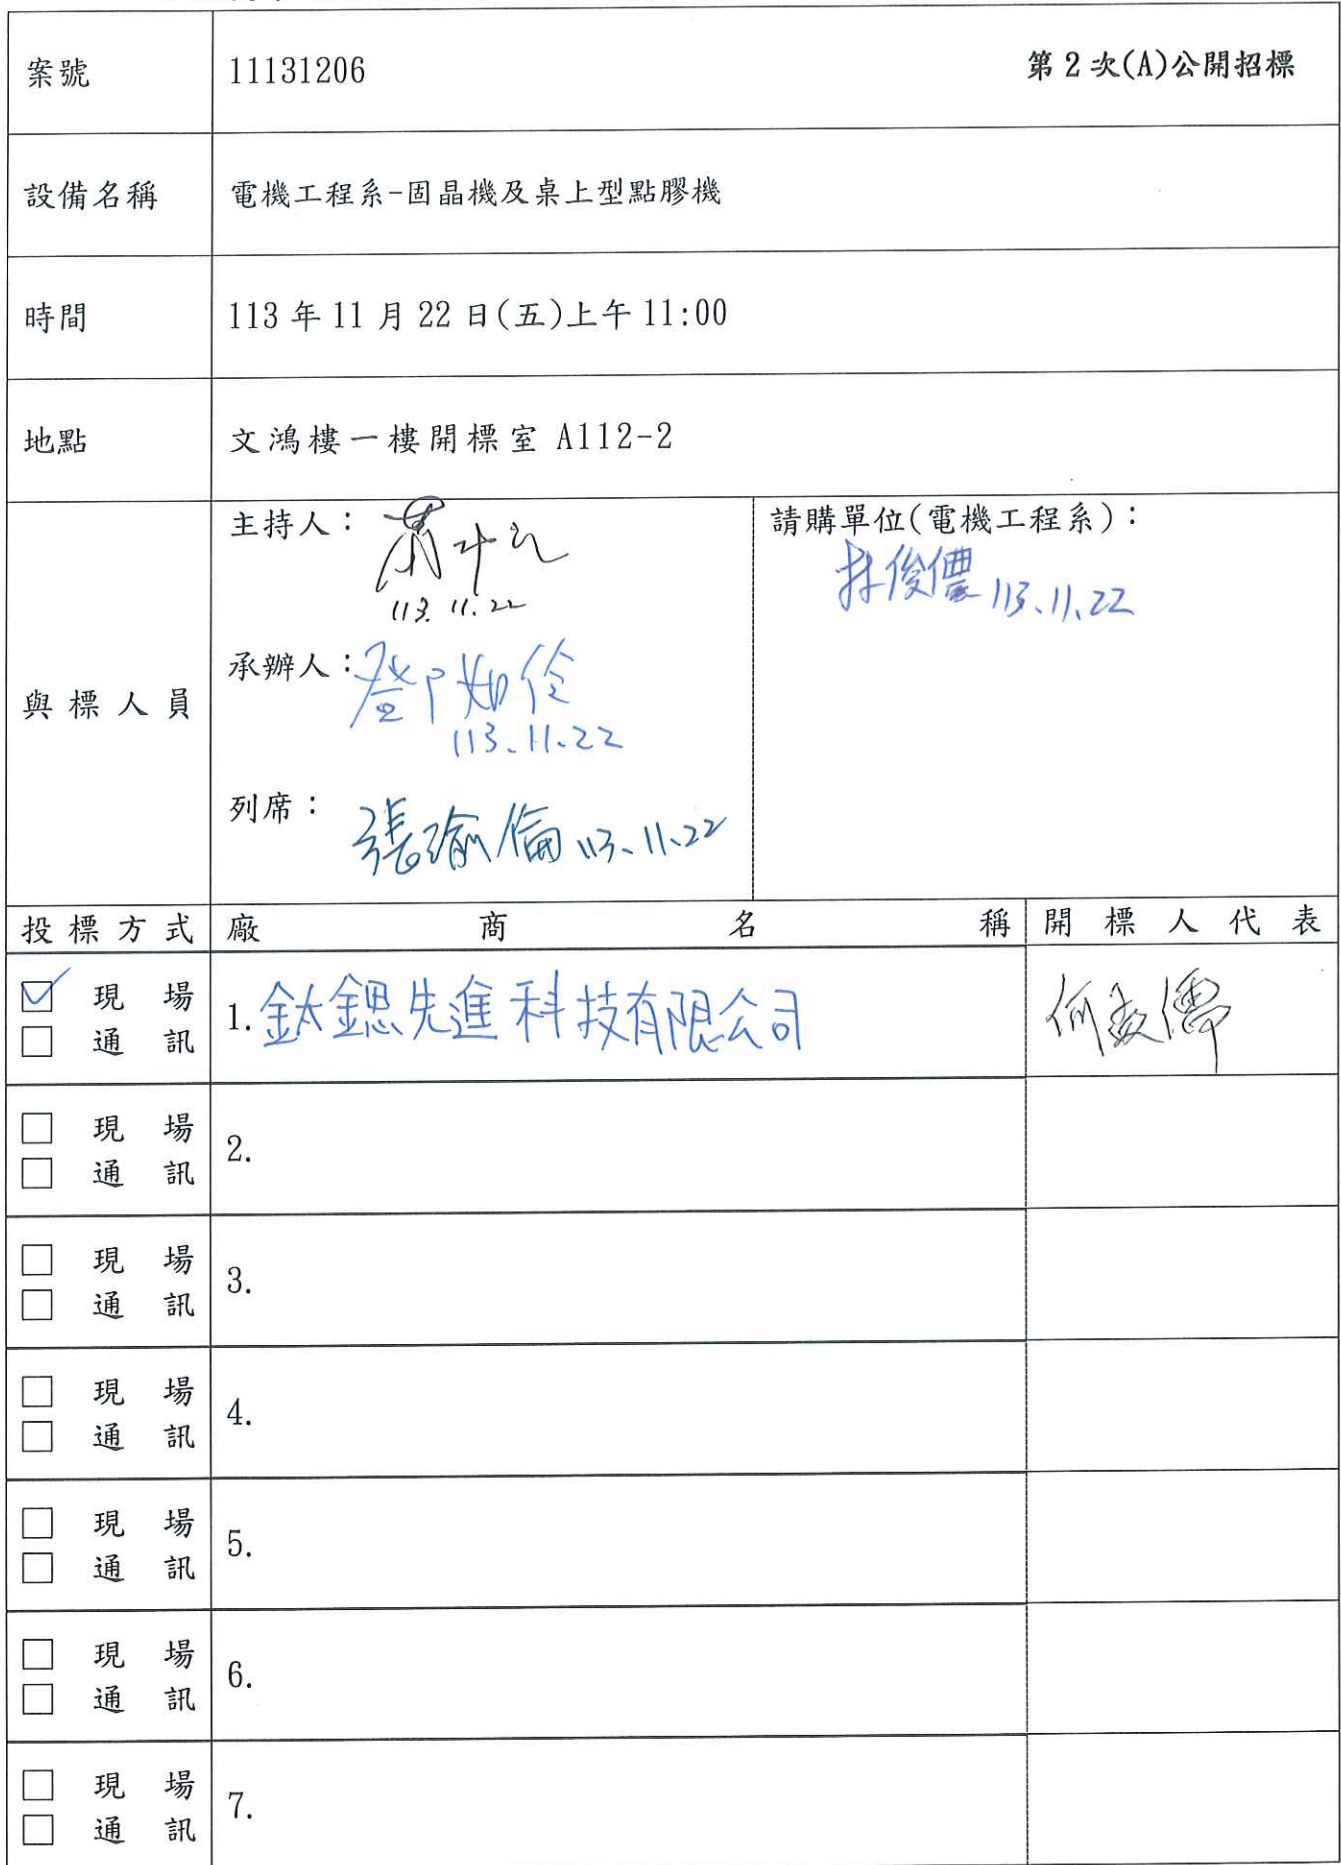 案號 11131206 第2次(A)公開招標
設備名稱 電機工程系-固晶機及桌上型點膠機
時間 113年11月22日(五)上午11:00
地點 文鴻樓一樓開標室 A112-2
與標人員
主持人：
113.11.22
承辦人：鄧如伶
113.11.22
列席：張瑜倫 113.11.22
請購單位(電機工程系)：
林俊儂 113.11.22
投標方式 廠商名稱 開標人代表
☑ 現場
□ 通訊
1. 鈦鍶先進科技有限公司
□ 現場
□ 通訊
2.
□ 現場
□ 通訊
3.
□ 現場
□ 通訊
4.
□ 現場
□ 通訊
5.
□ 現場
□ 通訊
6.
□ 現場
□ 通訊
7.